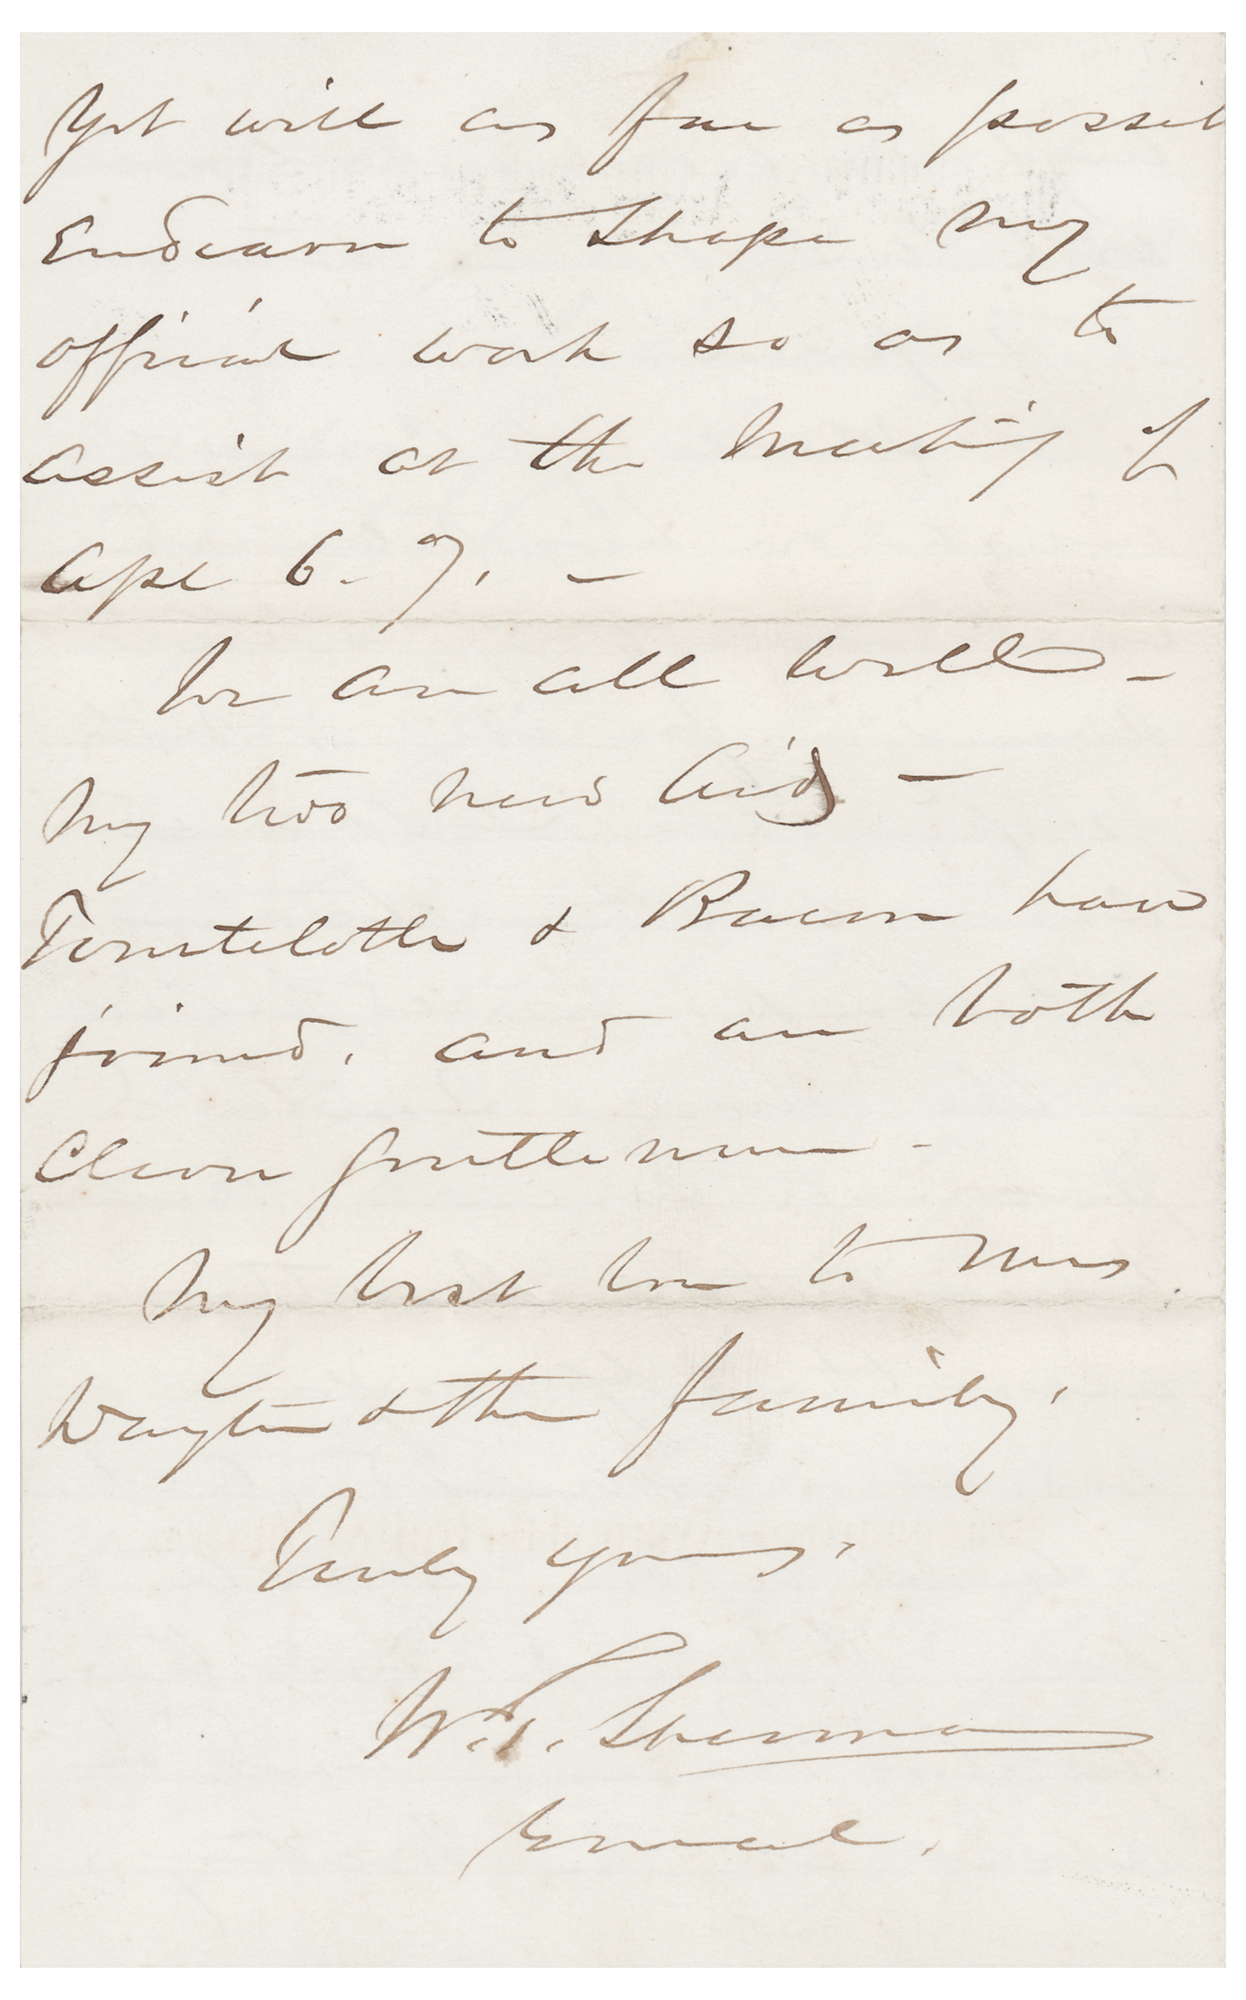 Yet will as far as possibl
Endeavor to Shape my
official work so as to
assist at the Meeting of
Apl 6-7. -
We are all well -
My two new Aids -
Tourtelotte & Bacon have
joined, and are both
Clever gentlemen -
My best love to Mrs
& the family.
Truly yours,
W. T. Sherman
General.